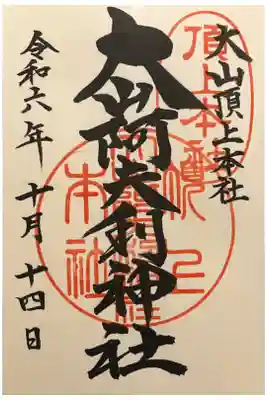 大山頂上本社
大山阿夫利神社
令和六年 十月 十四日
頂上本社